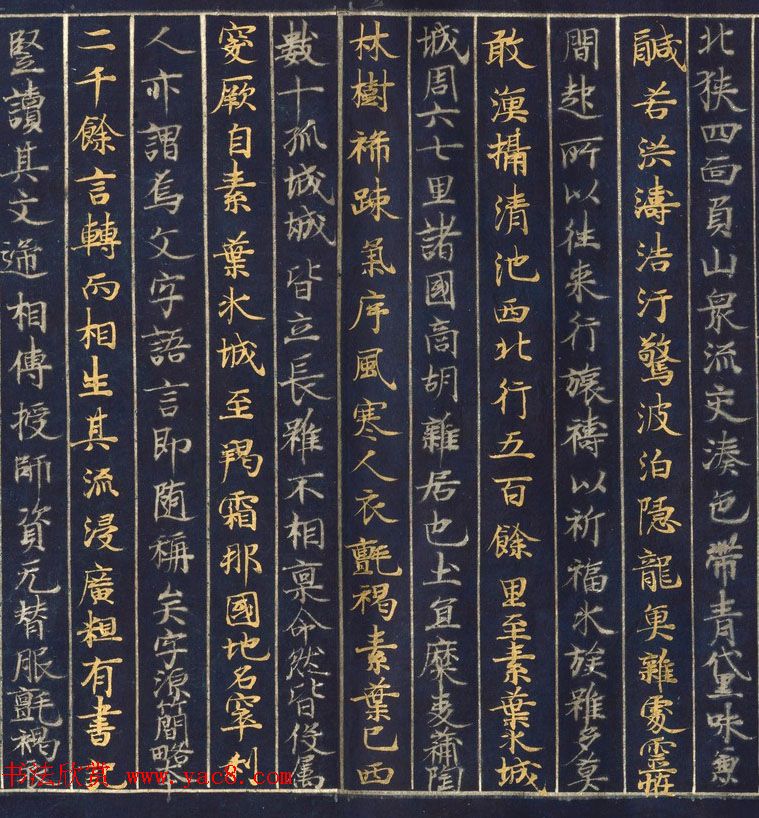 北狹四面負山衆流交湊色帶青代黑味兼
鹹苦洪濤浩汙驚波泊隱龍魚雜處靈恠
間起所以往来行旅禱以祈福水族雖多莫
敢漁捕清池西北行五百餘里至素葉水城
城周六七里諸國商胡雜居也土宜糜麦蒲陶
林樹稀疎氣序風寒人衣氎褐素葉已西
數十孤城城皆立長雖不相稟命然皆伇屬
突厥自素葉水城至羯霜那國地名窣利
人亦謂焉文字語言即随稱矣字源簡略
二千餘言轉而相生其流浸廣粗有書記
竪讀其文逓相傳授師資无替服氎褐
书法欣赏 www.yac8.com